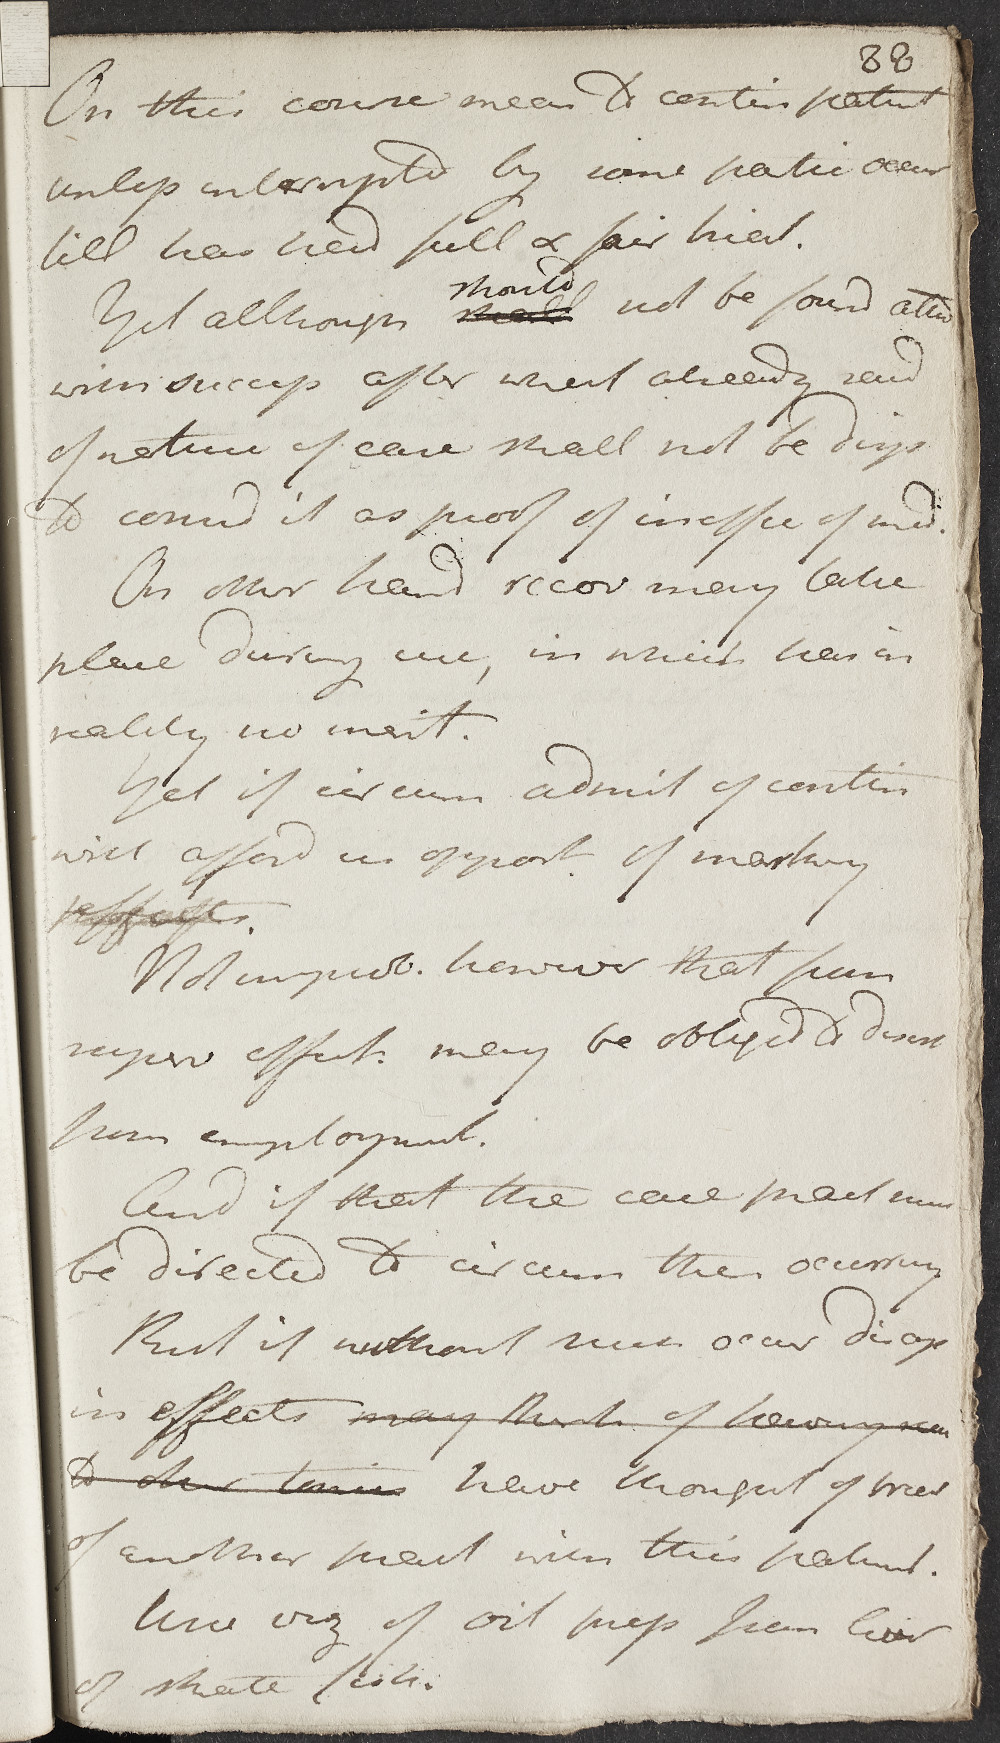 88
On this course mean to contin patient
unless interrupted by some partic occur
till has had full & fair trial.
should
Yet although shall not be found atten
with success after what already said
of nature of case shall not be disps
to consid it as proof of ineffic of med.
On other hand recov may take
place during use, in which has in
reality no merit.
Yet if circum admit of contin
will afford us opport. of marking
effects.
Not improb. however that from
super effects may be obliged to desist
from employment.
And if that the case pract must
be directed to circum then occurring
But if without such occur disap
in effects may think of having recour
to other tonics have thought of trial
of another pract with this patient.
Use viz of oil prep from liver
of skate fish.